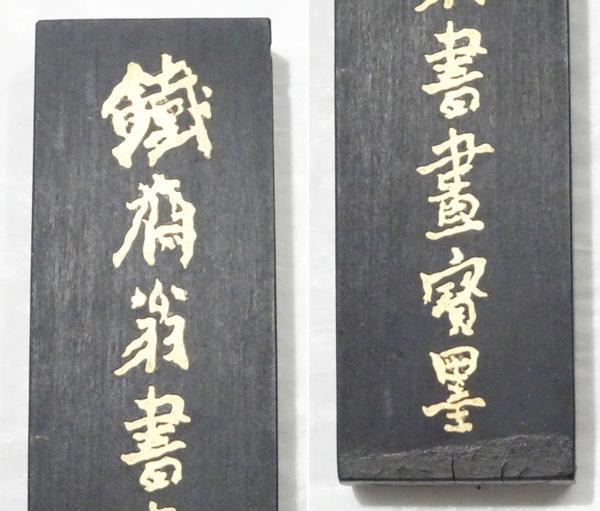 鐵齋翁書
書畫寶墨